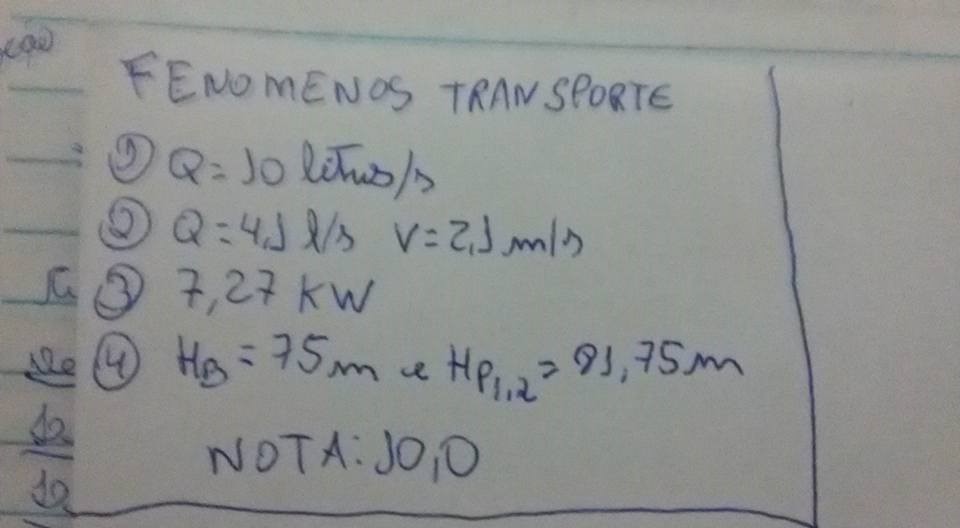 FENOMENOS TRANSPORTE
① Q = 10 litros/s
② Q = 4,1 l/s V = 2,1 m/s
③ 7,27 KW
④ HB = 75m e HP1,2 = 91,75m
NOTA: 10,0